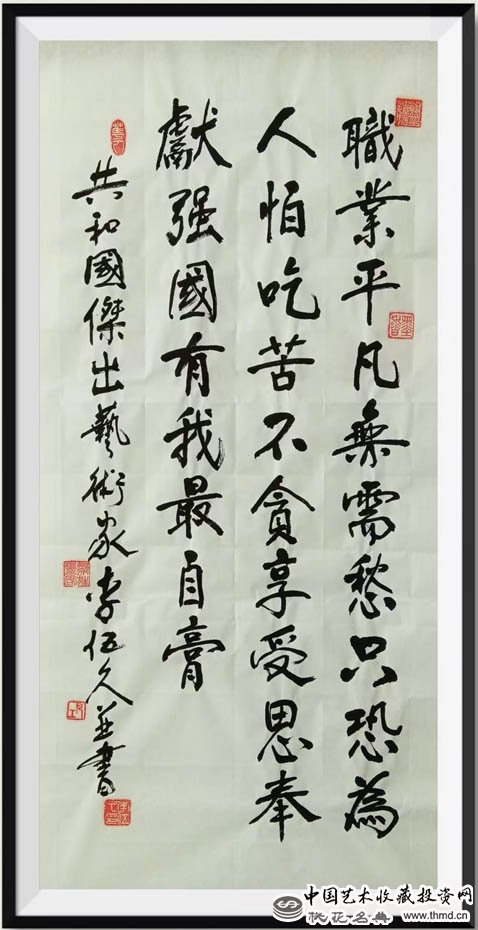 職業平凡無需愁只恐為
人怕吃苦不貪享受思奉
獻强國有我最自膏
共和國傑出藝術家李伍久並書
中国艺术收藏投资网
www.thmd.cn